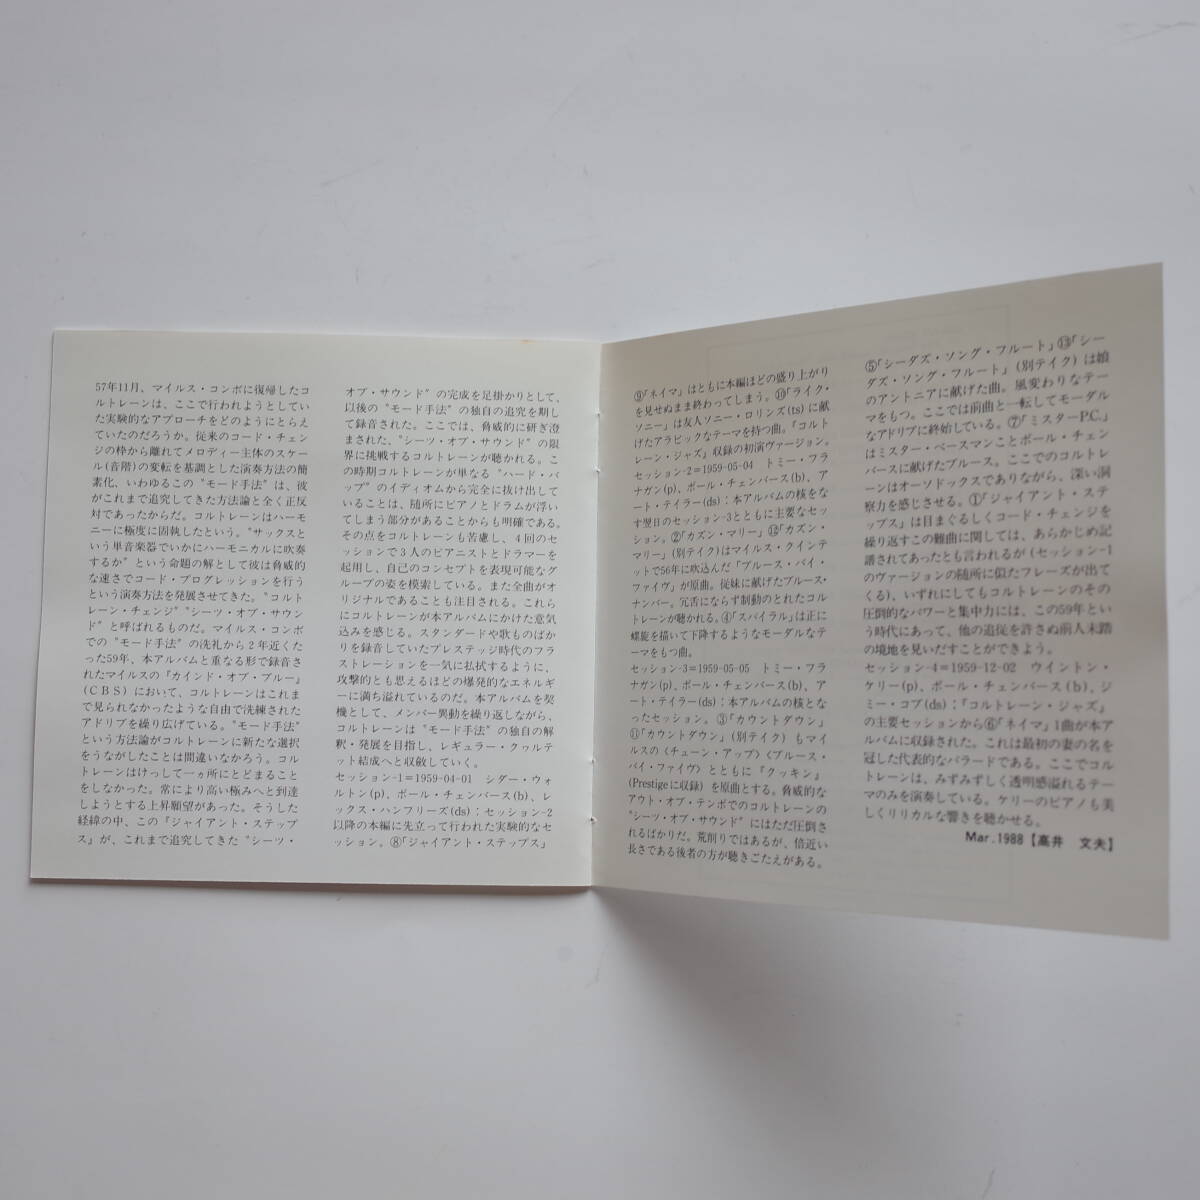 57年11月、マイルス・コンボに復帰したコ
ルトレーンは、ここで行われようとしてい
た実験的なアプローチをどのようにとらえ
ていたのだろうか。従来のコード・チェン
ジの枠から離れてメロディー主体のスケー
ル(音階)の変転を基調とした演奏方法の簡
素化、いわゆるこの“モード手法”は、彼
がこれまで追究してきた方法論と全く正反
対であったからだ。コルトレーンはハーモ
ニーに極度に固執したという。“サックスと
いう単音楽器でいかにハーモニカルに吹奏
するか”という命題の解として彼は脅威的
な速さでコード・プログレッションを行う
という演奏方法を発展させてきた。“コルト
レーン・チェンジ”“シーツ・オブ・サウン
ド”と呼ばれるものだ。マイルス・コンボ
での“モード手法”の洗礼から2年近くた
った59年、本アルバムと重なる形で録音さ
れたマイルスの『カインド・オブ・ブルー』
(CBS)において、コルトレーンはこれま
で見られなかったような自由で洗練された
アドリブを繰り広げている。“モード手法”
という方法論がコルトレーンに新たな選択
をうながしたことは間違いなかろう。コル
トレーンはけっして一ヵ所にとどまること
をしなかった。常により高い極みへと到達
しようとする上昇願望があった。そうした
経緯の中、この『ジャイアント・ステップ
ス』が、これまで追究してきた“シーツ・
オブ・サウンド”の完成を足掛かりとして、
以後の“モード手法”の独自の追究を期し
て録音された。ここでは、脅威的に研ぎ澄
まされた、“シーツ・オブ・サウンド”の限
界に挑戦するコルトレーンが聴かれる。こ
の時期コルトレーンが単なる“ハード・バ
ップ”のイディオムから完全に抜け出して
いることは、随所にピアノとドラムが浮い
てしまう部分があることからも明確である。
その点をコルトレーンも苦慮し、4回のセ
ッションで3人のピアニストとドラマーを
起用し、自己のコンセプトを表現可能なグ
ループの姿を模索している。また全曲がオ
リジナルであることも注目される。これら
にコルトレーンが本アルバムにかけた意気
込みを感じる。スタンダードや歌ものばか
りを録音していたプレステッジ時代のフラ
ストレーションを一気に払拭するように、
攻撃的とも思えるほどの爆発的なエネルギ
ーに満ち溢れているのだ。本アルバムを契
機として、メンバー異動を繰り返しながら、
コルトレーンは“モード手法”の独自の解
釈・発展を目指し、レギュラー・クヮルテ
ット結成へと収斂していく。
セッション-1=1959-04-01　シダー・ウォ
ルトン(p)、ポール・チェンバース(b)、レ
ックス・ハンフリーズ(ds):セッション-2
以降の本編に先立って行われた実験的なセ
ッション。⑧「ジャイアント・ステップス」
⑨「ネイマ」はともに本編ほどの盛り上がり
を見せぬまま終わってしまう。⑩「ライク・
ソニー」は友人ソニー・ロリンズ(ts)に献
げたアラビックなテーマを持つ曲。『コルト
レーン・ジャズ』収録の初演ヴァージョン。
セッション-2=1959-05-04　トミー・フラ
ナガン(p)、ポール・チェンバース(b)、ア
ート・テイラー(ds):本アルバムの核をな
す翌日のセッション-3とともに主要なセッ
ション。②「カズン・マリー」⑫「カズン・
マリー」(別テイク)はマイルス・クインテ
ットで56年に吹込んだ「ブルース・バイ・
ファイヴ」が原曲。従妹に献げたブルース・
ナンバー。冗舌にならず制動のとれたコル
トレーンが聴かれる。④「スパイラル」は正に
螺旋を描いて下降するようなモーダルなテ
ーマをもつ曲。
セッション-3=1959-05-05　トミー・フラ
ナガン(p)、ポール・チェンバース(b)、ア
ート・テイラー(ds):本アルバムの核とな
ったセッション。③「カウントダウン」
⑪「カウントダウン」(別テイク)もマイ
ルスの〈チューン・アップ〉〈ブルース・
バイ・ファイヴ〉とともに『クッキン』
(Prestigeに収録)を原曲とする。脅威的な
アウト・オブ・テンポでのコルトレーンの
“シーツ・オブ・サウンド”にはただ圧倒さ
れるばかりだ。荒削りではあるが、倍近い
長さである後者の方が聴きごたえがある。
⑤「シーダズ・ソング・フルート」⑬「シー
ダズ・ソング・フルート」(別テイク)は娘
のアントニアに献げた曲。風変わりなテー
マをもつ。ここでは前曲と一転してモーダル
なアドリブに終始している。⑦「ミスターP.C.」
はミスター・ベースマンことポール・チェン
バースに献げたブルース。ここでのコルトレ
ーンはオーソドックスでありながら、深い洞
察力を感じさせる。①「ジャイアント・ステ
ップス」は目まぐるしくコード・チェンジを
繰り返すこの難曲に関しては、あらかじめ記
譜されてあったとも言われるが(セッション-1
のヴァージョンの随所に似たフレーズが出て
くる)、いずれにしてもコルトレーンのその
圧倒的なパワーと集中力には、この59年とい
う時代にあって、他の追従を許さぬ前人未踏
の境地を見いだすことができよう。
セッション-4=1959-12-02　ウイントン・
ケリー(p)、ポール・チェンバース(b)、ジ
ミー・コブ(ds):『コルトレーン・ジャズ』
の主要セッションから⑥「ネイマ」1曲が本ア
ルバムに収録された。これは最初の妻の名を
冠した代表的なバラードである。ここでコル
トレーンは、みずみずしく透明感溢れるテー
マのみを演奏している。ケリーのピアノも美
しくリリカルな響きを聴かせる。
Mar.1988【高井　文夫】